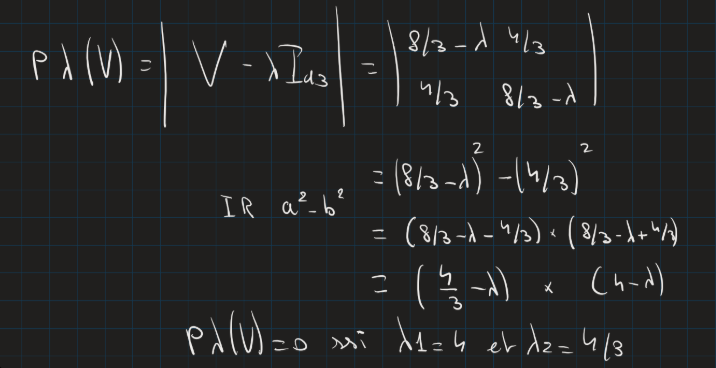 Pλ(V) = | V - λIa3 | = | 8/3 - λ 4/3
4/3 8/3 - λ |
= (8/3 - λ)² - (4/3)²
IR a² - b²
= (8/3 - λ - 4/3) × (8/3 - λ + 4/3)
= (4/3 - λ) × (4 - λ)
Pλ(V) = 0 ssi λ1 = 4 et λ2 = 4/3